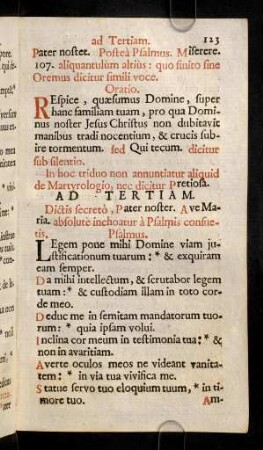 ad Tertiam. 123
Pater noster. Posteà Psalmus. Miserere.
107. aliquantulùm altiùs: quo finito sine
Oremus dicitur simili voce.
Oratio.
REspice, quæsumus Domine, super
hanc familiam tuam, pro qua Domi-
nus noster Jesus Christus non dubitavit
manibus tradi nocentium, & crucis subi-
ire tormentum. sed Qui tecum. dicitur
sub silentio.
In hoc triduo non annuntiatur aliquid
de Martyrologio, nec dicitur Pretiosa.
AD TERTIAM.
Dictis secretò, Pater noster. Ave Ma-
ria. absolutè inchoatur à Psalmis consue-
tis. Psalmus.
LEgem pone mihi Domine viam ju-
stificationum tuarum: * & exquiram
eam semper.
Da mihi intellectum, & scrutabor legem
tuam: * & custodiam illam in toto cor-
de meo.
Deduc me in semitam mandatorum tuo-
rum: * quia ipsam volui.
Inclina cor meum in testimonia tua: * &
non in avaritiam.
Averte oculos meos ne videant vanita-
tem: * in via tua vivifica me.
Statue servo tuo eloquium tuum, * in ti-
more tuo. Am-